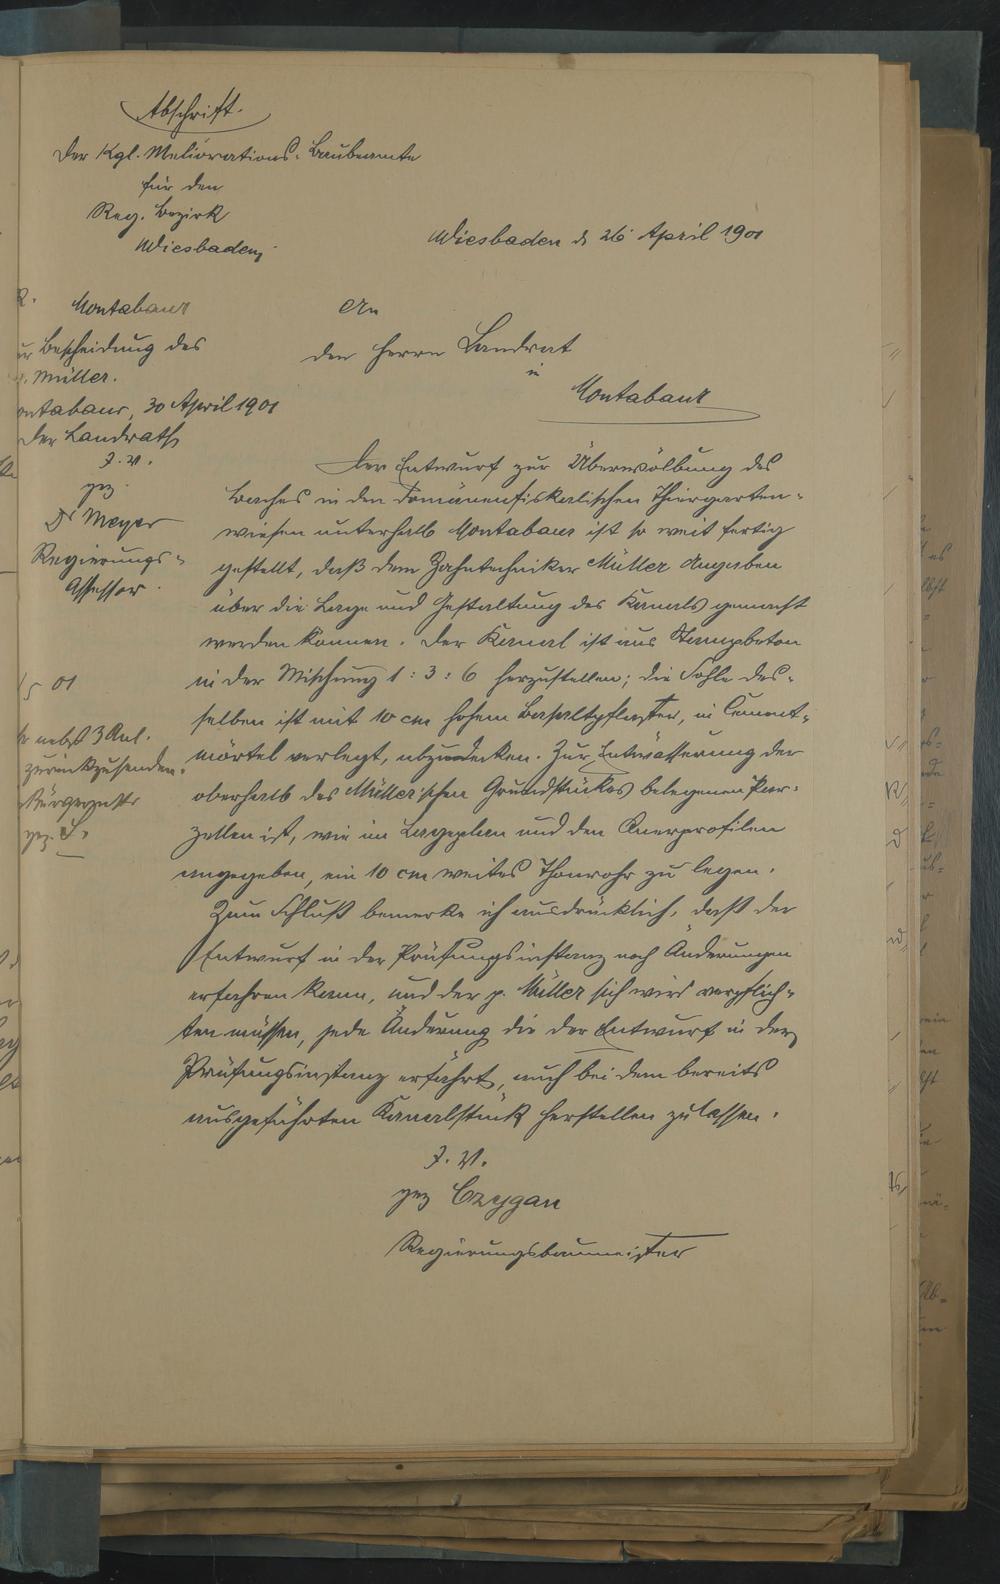 Abschrift.
Der Kgl. Meliorations-Baubeamte
für den
Reg. Bezirk
Wiesbaden.
Wiesbaden d. 26 April 1901
Montabaur
An
Bescheidung des
den Herrn Landrat
Müller.
in
Montabaur
ontabaur, 30 April 1901
Der Landrath
J. V.
gez.
Dr Meyer
Regierungs-
Assessor.
Der Entwurf zur Überwölbung des
Baches in den Domänenfiskalischen Thiergarten-
wiesen unterhalb Montabaur ist so weit fertig
gestellt, daß dem Zahntechniker Müller Angaben
über die Lage und Gestaltung des Kanals gemacht
werden können. Der Kanal ist aus Stampfbeton
in der Mischung 1 : 3 : 6 herzustellen; die Sohle des-
selben ist mit 10 cm hohem Basaltpflaster, in Cement-
mörtel verlegt, abzudecken. Zur Entwässerung der
oberhalb des Müller'schen Grundstückes belegenen Par-
zellen ist, wie im Lageplan und den Querprofilen
angegeben, ein 10 cm weites Thonrohr zu legen.
Zum Schluß bemerke ich ausdrücklich, daß der
Entwurf in der Prüfungsinstanz noch Änderungen
erfahren kann, und der p. Müller sich wird verpflich-
ten müssen, jede Änderung die der Entwurf in der
Prüfungsinstanz erfährt, auch bei dem bereits
ausgeführten Kanalstück herstellen zu lassen.
J. V.
gez Czygan
Regierungsbaumeister
01
nebst 3 Anl.
zurückzusenden.
gez. S.